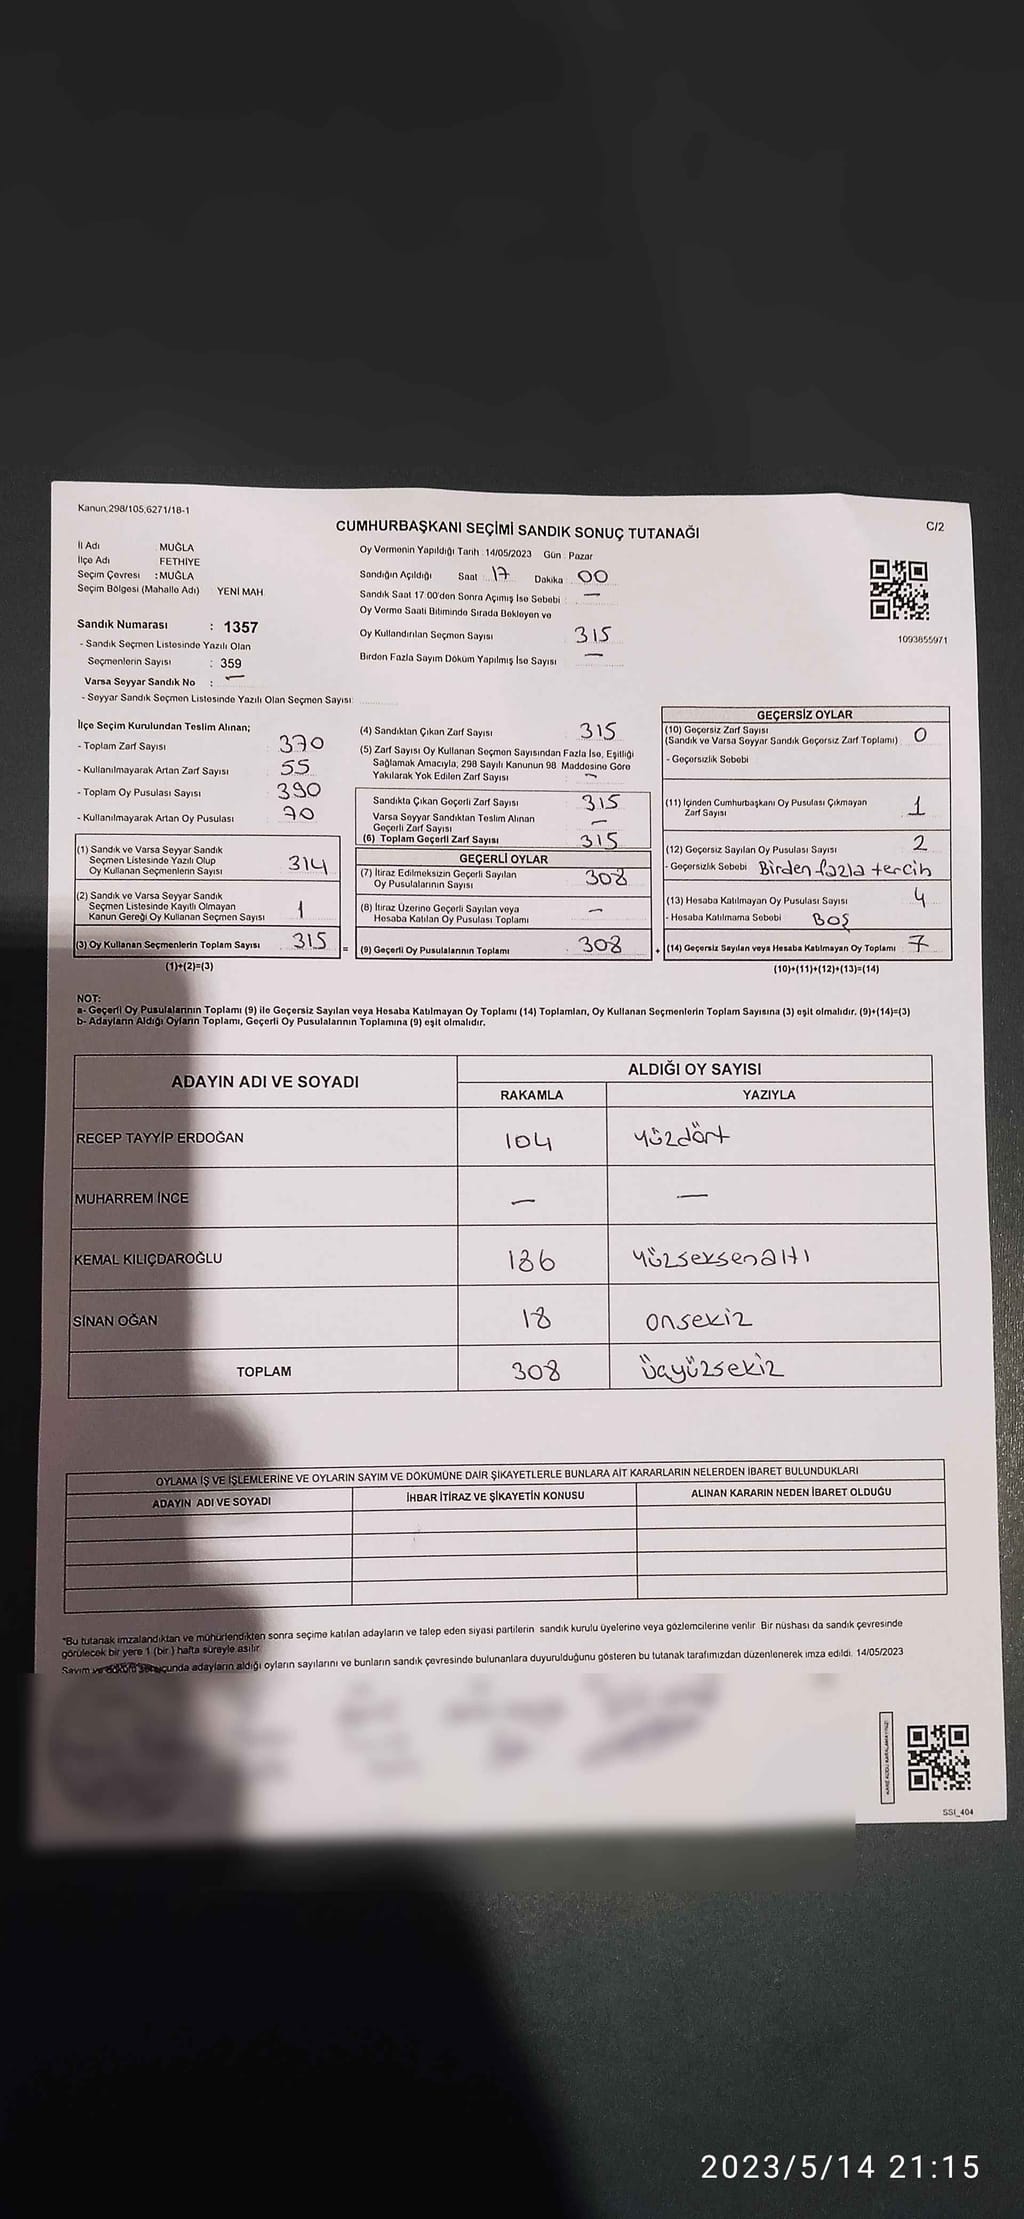 Kanun,298/105,6271/18-1
C/2
CUMHURBAŞKANI SEÇİMİ SANDIK SONUÇ TUTANAĞI
İl Adı MUĞLA
İlçe Adı FETHİYE
Seçim Çevresi :MUĞLA
Seçim Bölgesi (Mahalle Adı) YENİ MAH.
Sandık Numarası : 1357
- Sandık Seçmen Listesinde Yazılı Olan
Seçmenlerin Sayısı : 359
Varsa Seyyar Sandık No : –
- Seyyar Sandık Seçmen Listesinde Yazılı Olan Seçmen Sayısı:
Oy Vermenin Yapıldığı Tarih :14/05/2023 Gün : Pazar
Sandığın Açıldığı Saat : 17 Dakika : 00
Sandık Saat 17 00'den Sonra Açımış İse Sebebi : –
Oy Verme Saati Bitiminde Sırada Bekleyen ve
Oy Kullandırılan Seçmen Sayısı 315
Birden Fazla Sayım Döküm Yapılmış İse Sayısı –
1093855971
İlçe Seçim Kurulundan Teslim Alınan;
- Toplam Zarf Sayısı 370
- Kullanılmayarak Artan Zarf Sayısı 55
- Toplam Oy Pusulası Sayısı 390
- Kullanılmayarak Artan Oy Pusulası 70
(1) Sandık ve Varsa Seyyar Sandık
Seçmen Listesinde Yazılı Olup
Oy Kullanan Seçmenlerin Sayısı 314
(2) Sandık ve Varsa Seyyar Sandık
Seçmen Listesinde Kayıtlı Olmayan
Kanun Gereği Oy Kullanan Seçmen Sayısı 1
(3) Oy Kullanan Seçmenlerin Toplam Sayısı 315 =
(1)+(2)=(3)
(4) Sandıktan Çıkan Zarf Sayısı 315
(5) Zarf Sayısı Oy Kullanan Seçmen Sayısından Fazla İse, Eşitliği
Sağlamak Amacıyla, 298 Sayılı Kanunun 98 Maddesine Göre
Yakılarak Yok Edilen Zarf Sayısı –
Sandıkta Çıkan Geçerli Zarf Sayısı 315
Varsa Seyyar Sandıktan Teslim Alınan
Geçerli Zarf Sayısı –
(6) Toplam Geçerli Zarf Sayısı 315
GEÇERLİ OYLAR
(7) İtiraz Edilmeksizin Geçerli Sayılan
Oy Pusulalarının Sayısı 308
(8) İtiraz Üzerine Geçerli Sayılan veya
Hesaba Katılan Oy Pusulası Toplamı –
(9) Geçerli Oy Pusulalarının Toplamı 308 +
GEÇERSİZ OYLAR
(10) Geçersiz Zarf Sayısı
(Sandık ve Varsa Seyyar Sandık Geçersiz Zarf Toplamı) 0
- Geçersizlik Sebebi
(11) İçinden Cumhurbaşkanı Oy Pusulası Çıkmayan
Zarf Sayısı 1
(12) Geçersiz Sayılan Oy Pusulası Sayısı 2
- Geçersizlik Sebebi Birden fazla tercih
(13) Hesaba Katılmayan Oy Pusulası Sayısı 4
- Hesaba Katılmama Sebebi Boş
(14) Geçersiz Sayılan veya Hesaba Katılmayan Oy Toplamı 7
(10)+(11)+(12)+(13)=(14)
NOT:
a- Geçerli Oy Pusulalarının Toplamı (9) ile Geçersiz Sayılan veya Hesaba Katılmayan Oy Toplamı (14) Toplamları, Oy Kullanan Seçmenlerin Toplam Sayısına (3) eşit olmalıdır. (9)+(14)=(3)
b- Adayların Aldığı Oyların Toplamı, Geçerli Oy Pusulalarının Toplamına (9) eşit olmalıdır.
ADAYIN ADI VE SOYADI
ALDIĞI OY SAYISI
RAKAMLA YAZIYLA
RECEP TAYYİP ERDOĞAN 104 yüzdört
MUHARREM İNCE – –
KEMAL KILIÇDAROĞLU 186 yüzseksenaltı
SİNAN OĞAN 18 onsekiz
TOPLAM 308 üçyüzsekiz
OYLAMA İŞ VE İŞLEMLERİNE VE OYLARIN SAYIM VE DÖKÜMÜNE DAİR ŞİKAYETLERLE BUNLARA AİT KARARLARIN NELERDEN İBARET BULUNDUKLARI
ADAYIN ADI VE SOYADI İHBAR İTİRAZ VE ŞİKAYETİN KONUSU ALINAN KARARIN NEDEN İBARET OLDUĞU
*Bu tutanak imzalandıktan ve mühürlendikten sonra seçime katılan adayların ve talep eden siyasi partilerin sandık kurulu üyelerine veya gözlemcilerine verilir Bir nüshası da sandık çevresinde
görülecek bir yere 1 (bir) hafta süreyle asılır.
Sayım ve döküm sonucunda adayların aldığı oyların sayılarını ve bunların sandık çevresinde bulunanlara duyurulduğunu gösteren bu tutanak tarafımızdan düzenlenerek imza edildi. 14/05/2023
SSI_404
2023/5/14 21:15